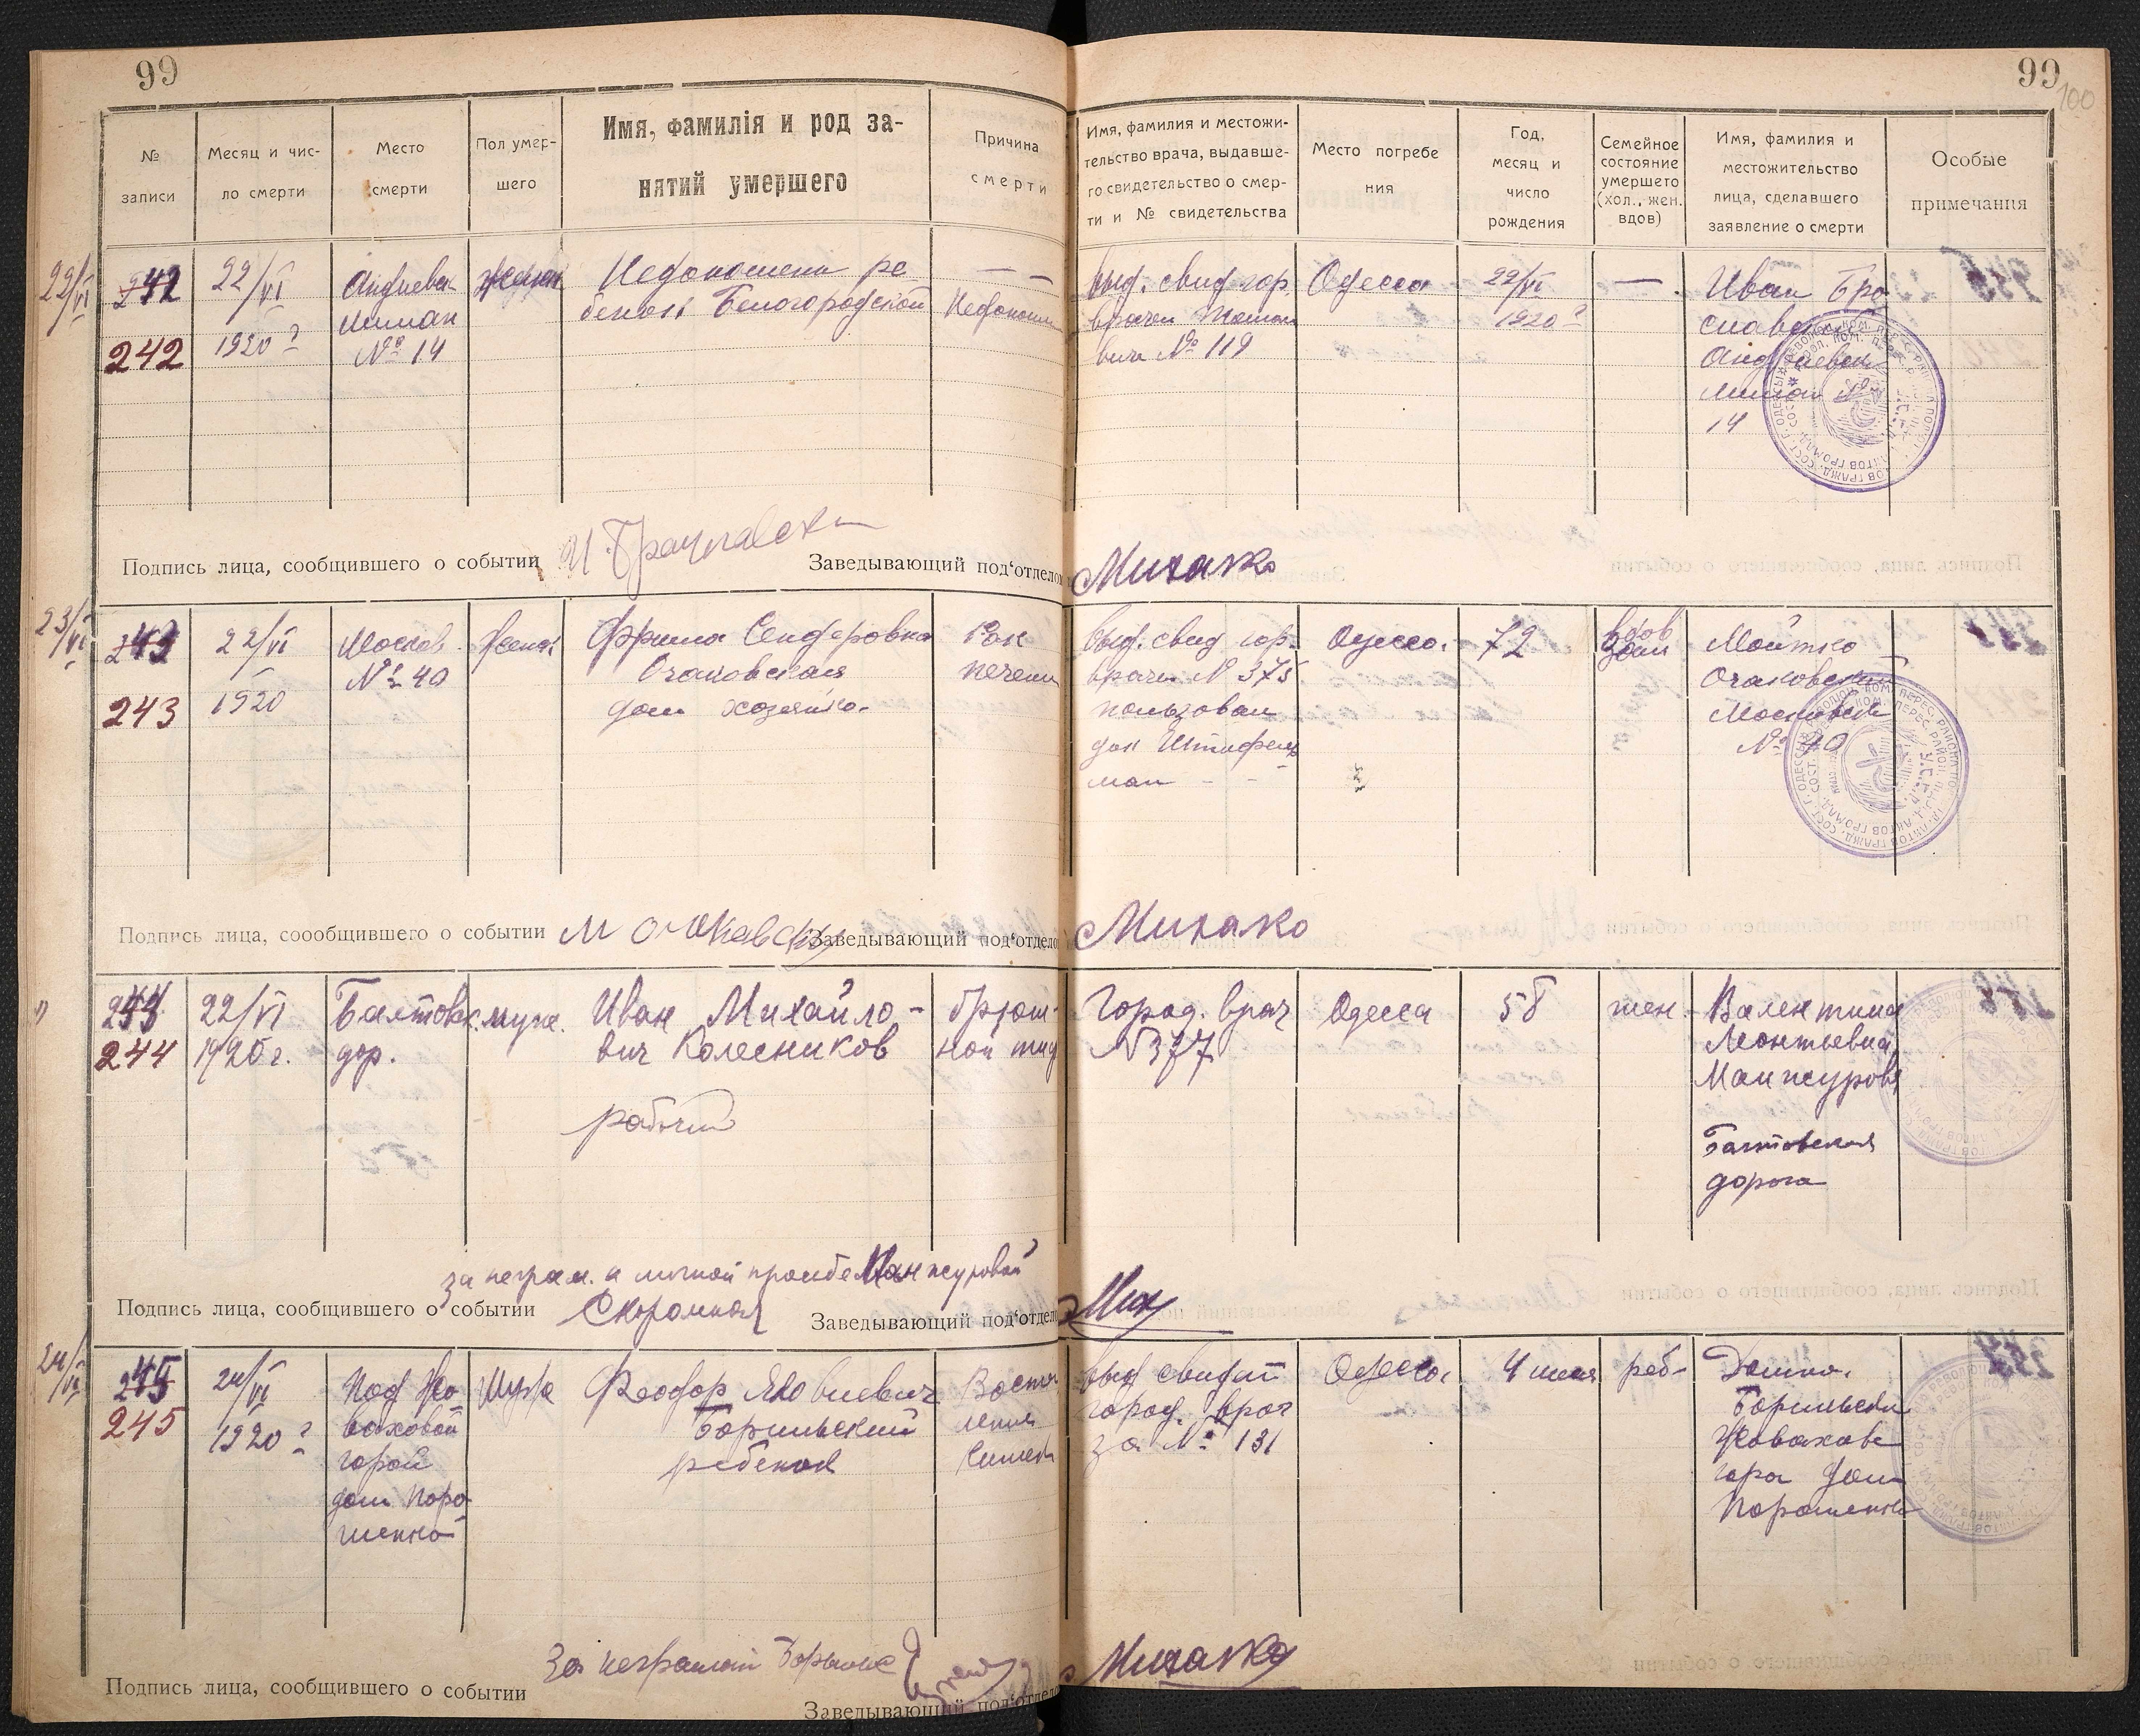 99
99
100
№
записи
Месяц и чис-
ло смерти
Место
смерти
Пол умер-
шего
Имя, фамилія и род за-
нятий умершего
Причина
смерти
Имя, фамилия и местожи-
тельство врача, выдавше-
го свидетельство о смер-
ти и № свидетельства
Место погребе
ния
Год,
месяц и
число
рождения
Семейное
состояние
умершего
(хол., жен.
вдов)
Имя, фамилия и
местожительство
лица, сделавшего
заявление о смерти
Особые
примечания
22/VI
242
242
22/VI
1920
Лиман
№ 14
Недоношени ре
бенок Белогородской
выд. свид гор.
врачем
вича № 119
Одесса
22/VI
1920
—
Иван Бро
славский
Андреевск
лиман №
14
Подпись лица, сообщившего о событии
Заведывающий под‘отделом
Мичако
23/VI
243
243
22/VI
1920
Москов.
№ 40
Женск
Фрима Сендеровна
Очаковская
дом хозяйка.
Рак
печени
выд. свид гор.
врачем № 375
пользовал
док Штифель
ман
Одесса.
72
вдов
Мошко
Очаковский
Московск
№ 40
Подпись лица, соообщившего о событии
М Очаковский
Заведывающий под‘отдело
Мичако
"
244
244
22/VI
1920 г.
Балтовск.
дор.
мужс.
Иван Михайло-
вич Колесников
рабочий
брюш-
ной тиф
Город. врач
N 377
Одесса
58
жен.
Валентина
Леонтьевна
Манжурова
Балтовская
дорога
за неграм. и личной прозбе Манжуровой
Подпись лица, сообщившего о событии
Скоромная
Заведывающий под‘отдело
Мич
24/VI
245
245
24/VI
1920
Под Же
ваховой
горой
дом Поро
шенко
Муж
Феодор Яковлевич
Борильский
ребенок
Воспа
ление
кишек
выд свидет
город. врач
за № 131
Одесса
4 меся
реб-
Домна.
Борильска
Жевахова
гора дом
Порошенко
За неграмот
Подпись лица, сообщившего о событии
Заведывающий под‘отдело
Мичако